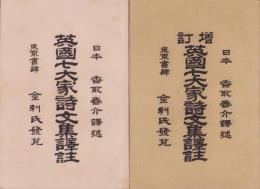 日本 香取春介譯述
英國七大家詩文集譯註
東京書肆 金刺氏發兌
日本 香取春介譯述
增訂
英國七大家詩文集譯註
東京書肆 金刺氏發兌